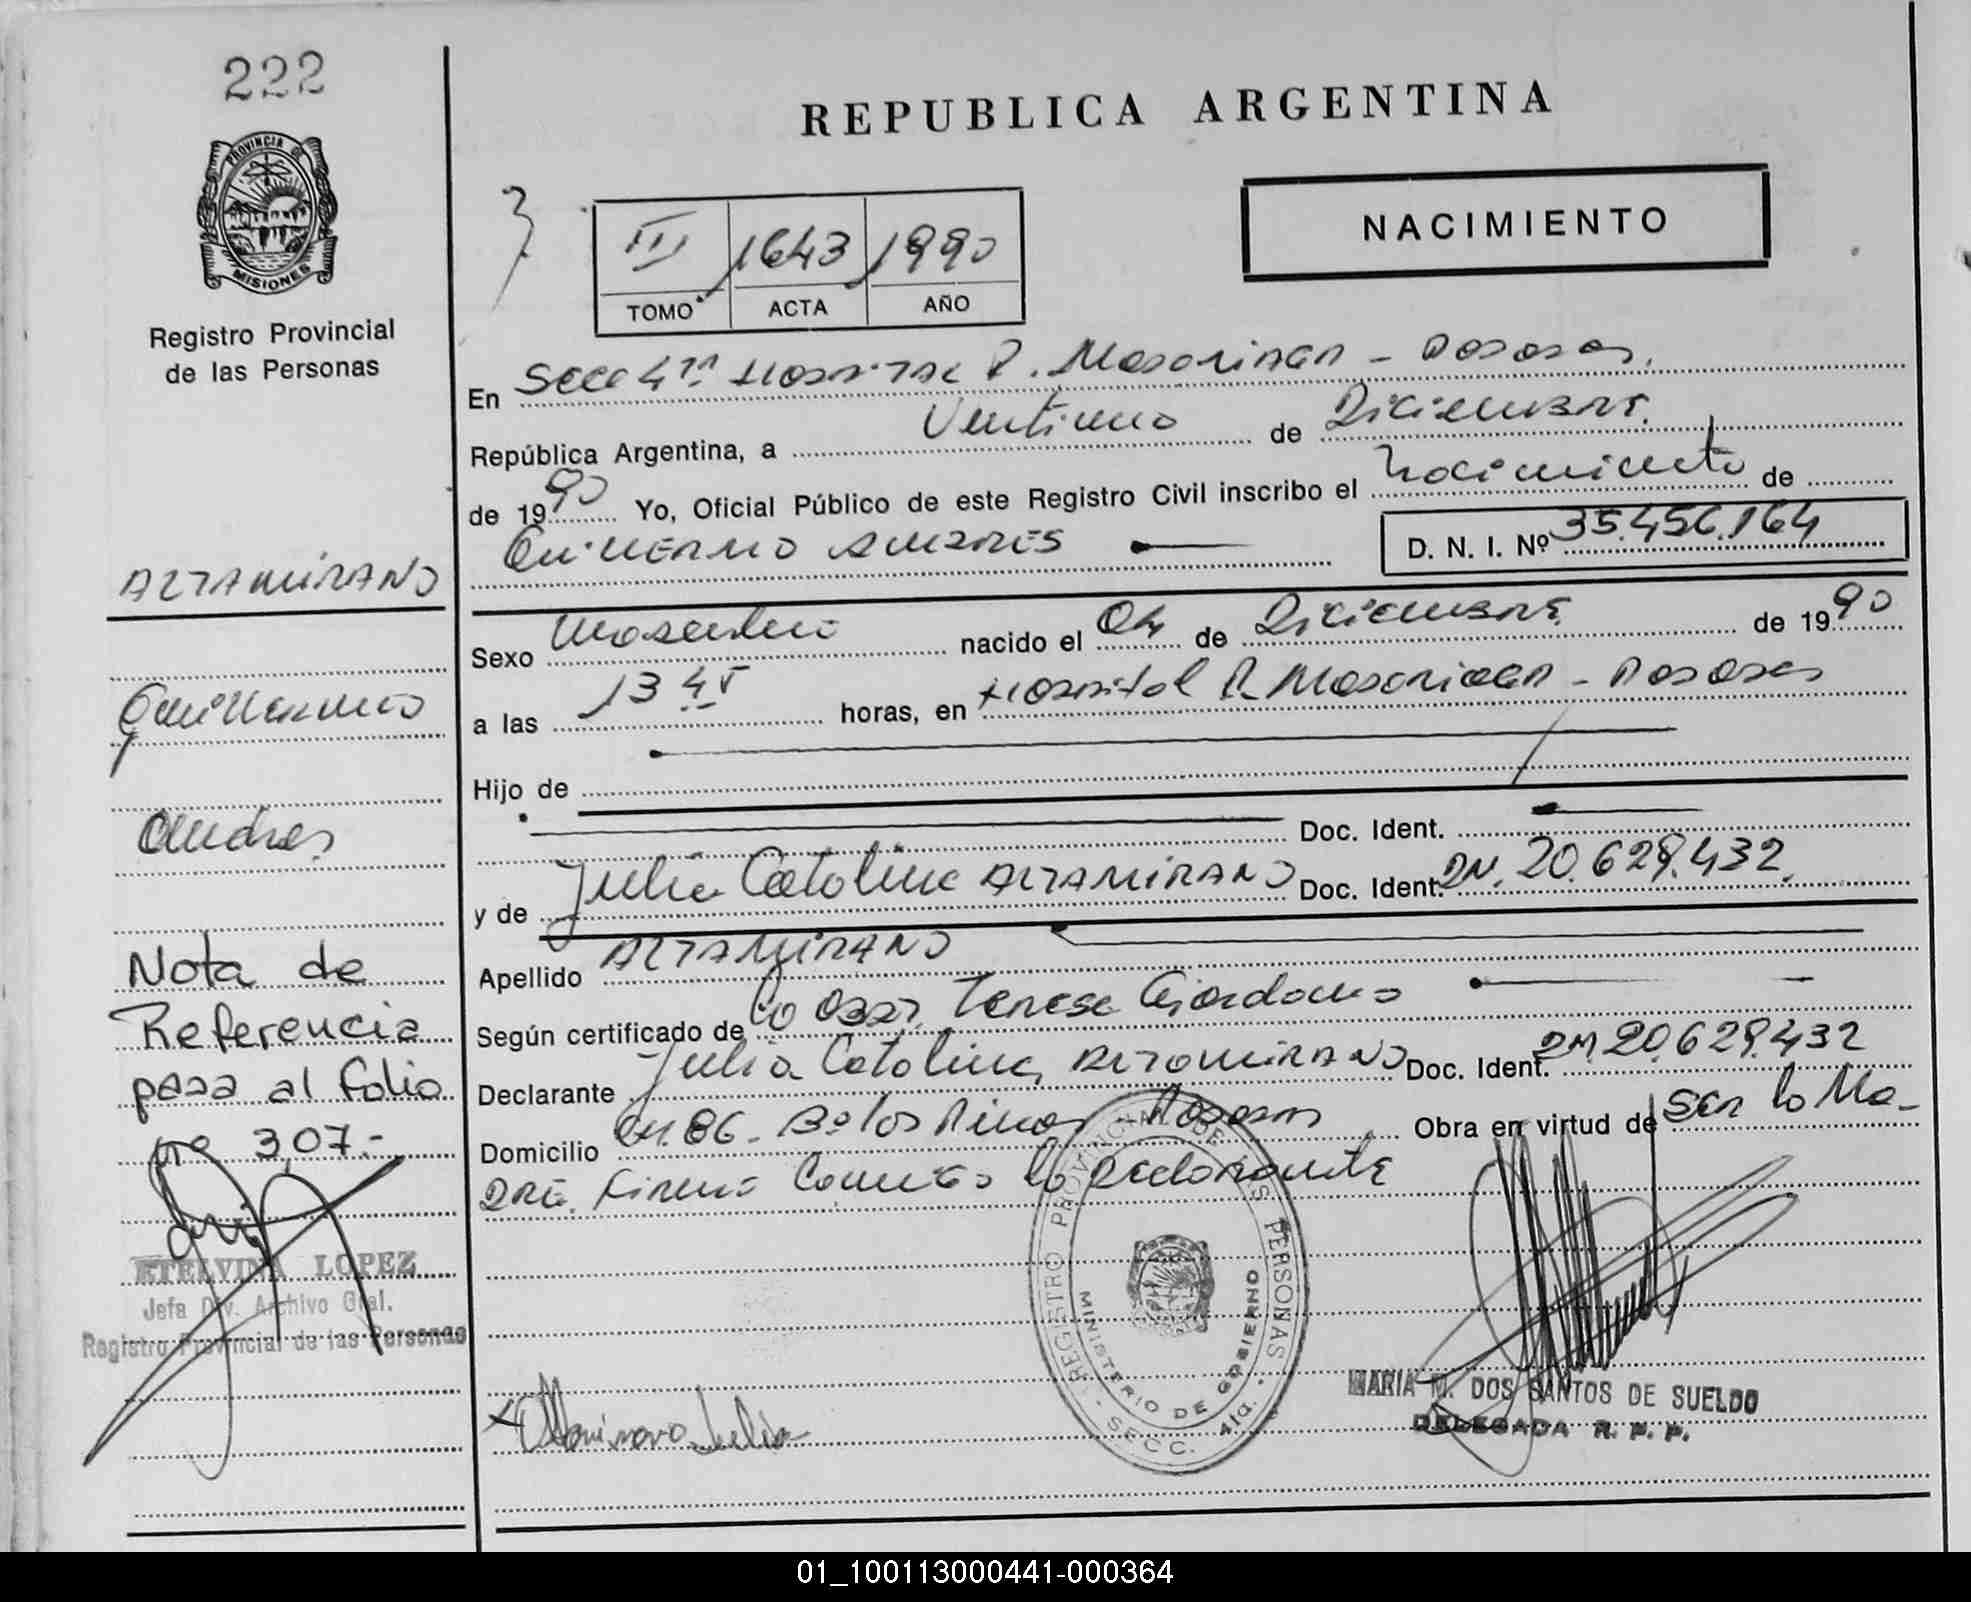 222
REPUBLICA ARGENTINA
PROVINCIA DE
MISIONES
Registro Provincial
de las Personas
III 1643 1990
TOMO ACTA AÑO
NACIMIENTO
En Secc 4ta Hospital R. Madariaga - Posadas.
República Argentina, a Ventiuno de Diciembre.
de 1990 Yo, Oficial Público de este Registro Civil inscribo el Nacimiento de
Guillermo Andres
D. N. I. Nº 35.456.164
ALTAMIRANO
Guillermo
Andres
Sexo Masculino nacido el 04 de Diciembre de 1990
a las 13 45 horas, en Hospital R. Madariaga - Posadas
Hijo de
Doc. Ident.
y de Julia Catalina ALTAMIRANO Doc. Ident. DNI. 20.629.432.
Apellido ALTAMIRANO
Según certificado de la Obst. Teresa Giordano
Declarante Julia Catalina ALTAMIRANO Doc. Ident. DNI 20.629.432
Domicilio CH. 86 - Bº los Pinos Posadas Obra en virtud de Ser la Ma-
dre. Firma Conmigo la declarante
Nota de
Referencia
pasa al folio
nº 307.-
ETELVINA LOPEZ
Jefa Div. Archivo Gral.
Registro Provincial de las Personas
REGISTRO PROVINCIAL DE LAS PERSONAS - SECC. 4ta.
MINISTERIO DE GOBIERNO
Altamirano Julia
MARIA M. DOS SANTOS DE SUELDO
DELEGADA R. P. P.
01_100113000441-000364